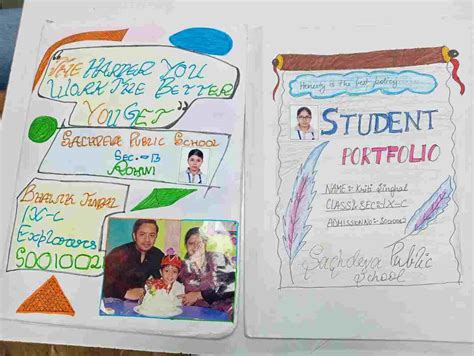 "THE HARDER YOU
WORK THE BETTER
YOU GET"
SACHDEVA PUBLIC SCHOOL
SEC-13
ROHINI
IX-C
Explorers
S001002
Honesty is the best policy
STUDENT
PORTFOLIO
NAME:- Kriti Singhal
CLASS & SEC:- IX-C
ADMISSION NO:-
Sachdeva Public
School